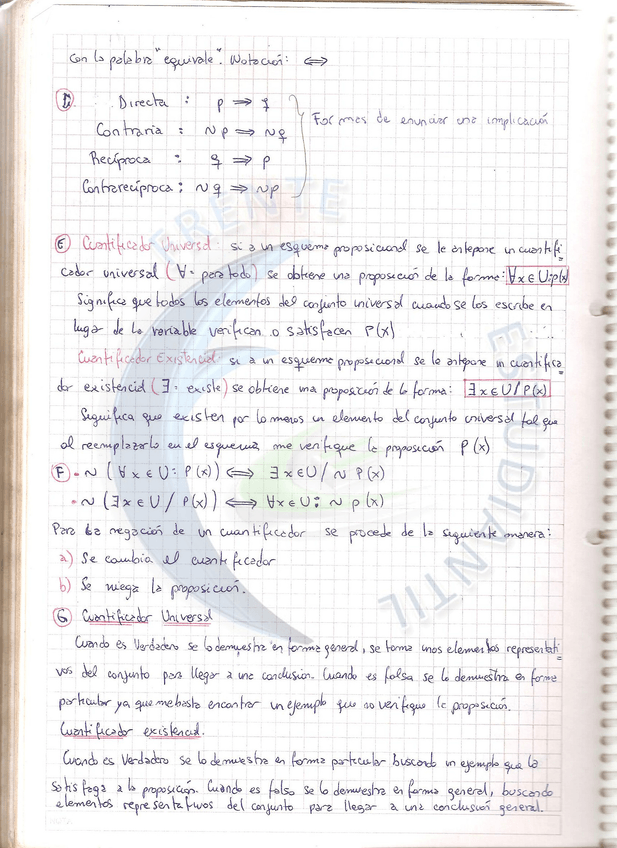 con la palabra "equivale". Notación: ⟺
Directa : p ⟹ q
Contraria : ~p ⟹ ~q
Formas de enunciar una implicación
Recíproca : q ⟹ p
Contrarecíproca : ~q ⟹ ~p
FRENTE
ESTUDIANTIL
E Cuantificador Universal: si a un esquema proposicional se le antepone un cuantifi
cador universal (∀ = para todo) se obtiene una proposición de la forma: ∀x∈U: p(x)
Significa que todos los elementos del conjunto universal cuando se los escribe en
lugar de la variable verifican o satisfacen P(x)
Cuantificador Existencial: si a un esquema proposicional se le antepone un cuantifica
dor existencial (∃ = existe) se obtiene una proposición de la forma: ∃x∈U / P(x)
Significa que existen por lo menos un elemento del conjunto universal tal que
al reemplazarlo en el esquema, me verifique la proposición P(x)
F • ~(∀x∈U: P(x)) ⟺ ∃x∈U / ~P(x)
• ~(∃x∈U / P(x)) ⟺ ∀x∈U: ~p(x)
Para la negación de un cuantificador se procede de la siguiente manera:
a) Se cambia el cuantificador
b) Se niega la proposición.
G Cuantificador Universal
Cuando es Verdadero se lo demuestra en forma general, se toma unos elementos representati
vos del conjunto para llegar a una conclusión. Cuando es falsa se lo demuestra en forma
particular ya que me basta encontrar un ejemplo que no verifique la proposición.
Cuantificador existencial.
Cuando es Verdadero se lo demuestra en forma particular buscando un ejemplo que la
satisfaga a la proposición. Cuando es falso se lo demuestra en forma general, buscando
elementos representativos del conjunto para llegar a una conclusión general.